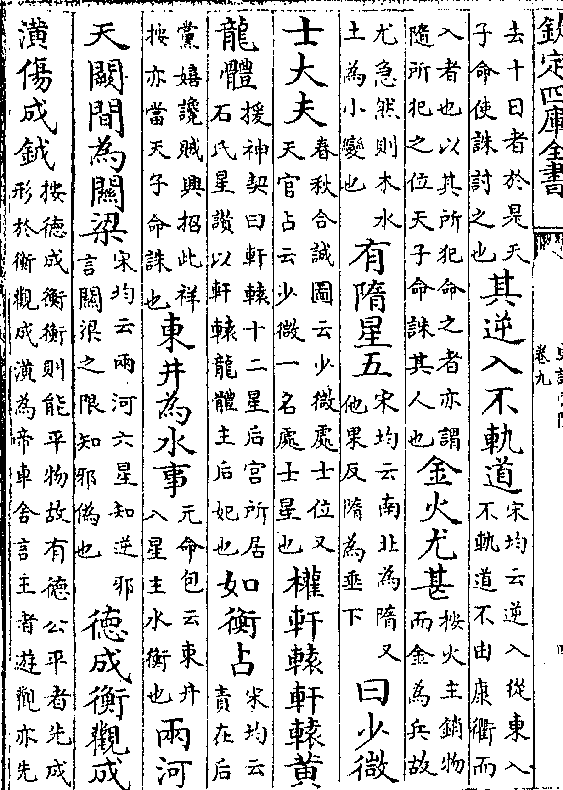 欽定四庫全書
史記索隱
卷九
去十日者於是天
子命使誅討之也
其逆入不軌道
宋均云逆入從東入
不軌道不由康衢而
入者也以其所犯命之者亦謂
隨所犯之位天子命誅其人也
金火尤甚
按火主銷物
而金為兵故
尤急然則木水
土為小變也
有隋星五
宋均云南北為隋又
他果反隋為垂下
曰少微
士大夫
春秋合誠圖云少微處士位又
天官占云少微一名處士星也
權軒轅軒轅黃
龍體
援神契曰軒轅十二星后宮所居
石氏星讚以軒轅龍體主后妃也
如衡占
宋均云
責在后
黨嬉讒賊興招此祥
按亦當天子命誅也
東井為水事
元命包云東井
八星主水衡也
兩河
天闕間為關梁
宋均云兩河六星知逆邪
言關梁之限知邪偽也
德成衡觀成
潢傷成鉞
按德成衡衡則能平物故有德公平者先成
形於衡觀成潢為帝車舍言主者遊觀亦先